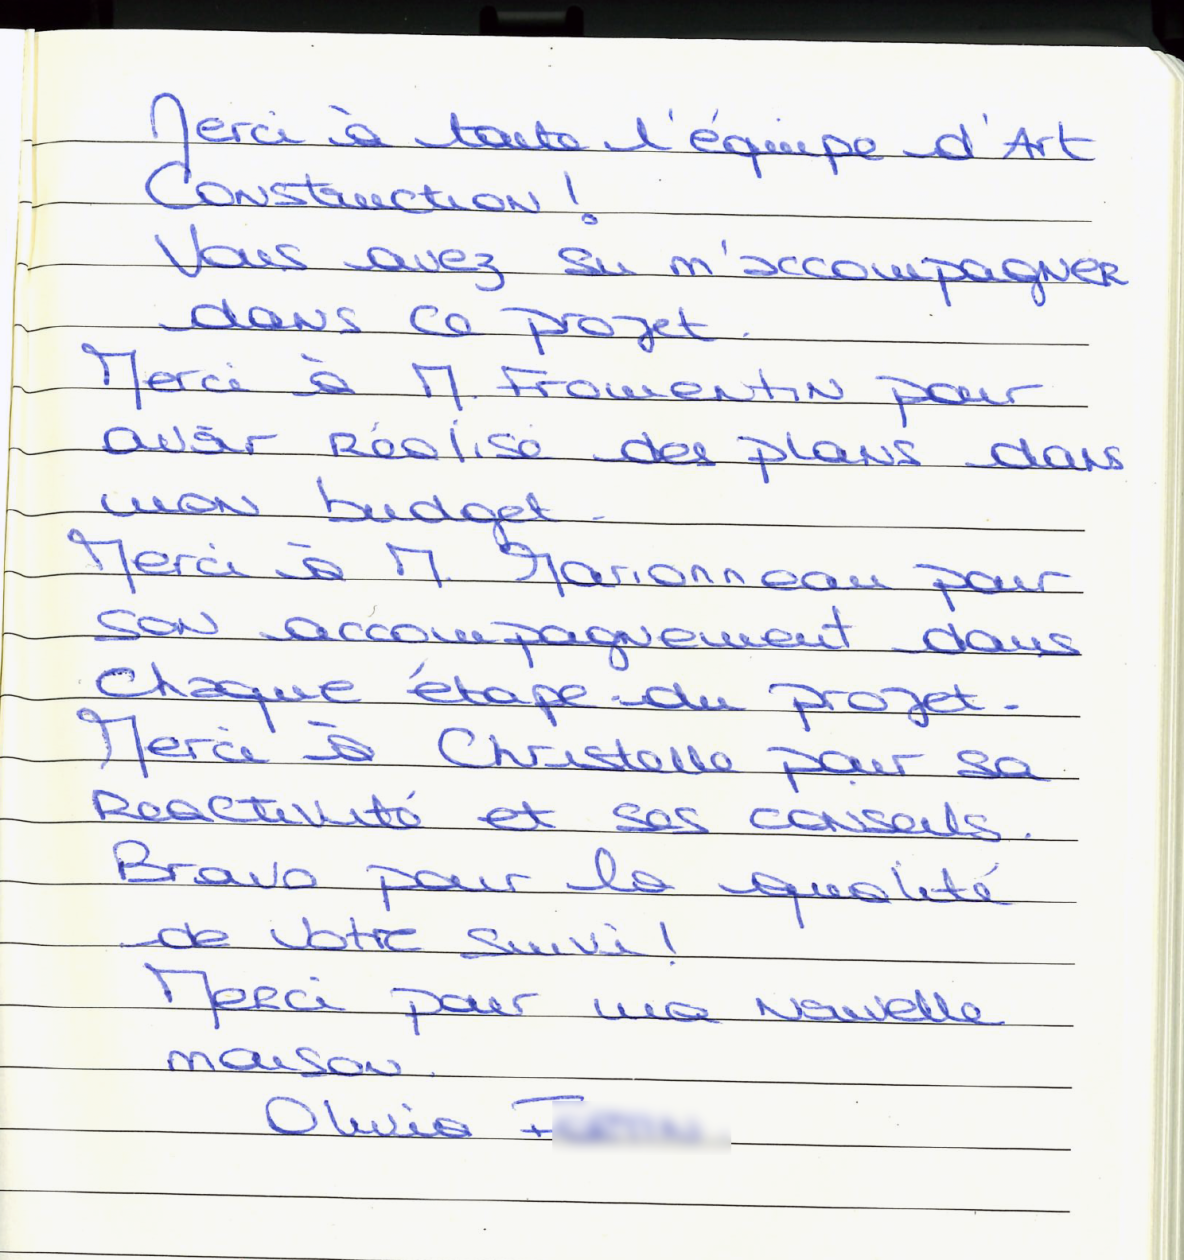 Merci à toute l'équipe d'Art
Construction !
Vous avez su m'accompagner
dans ce projet.
Merci à M. Fromentin pour
avoir réalisé des plans dans
mon budget.
Merci à M. Marionneau pour
son accompagnement dans
chaque étape du projet.
Merci à Christelle pour sa
réactivité et ses conseils.
Bravo pour la qualité
de votre suivi !
Merci pour ma nouvelle
maison.
Olivia F